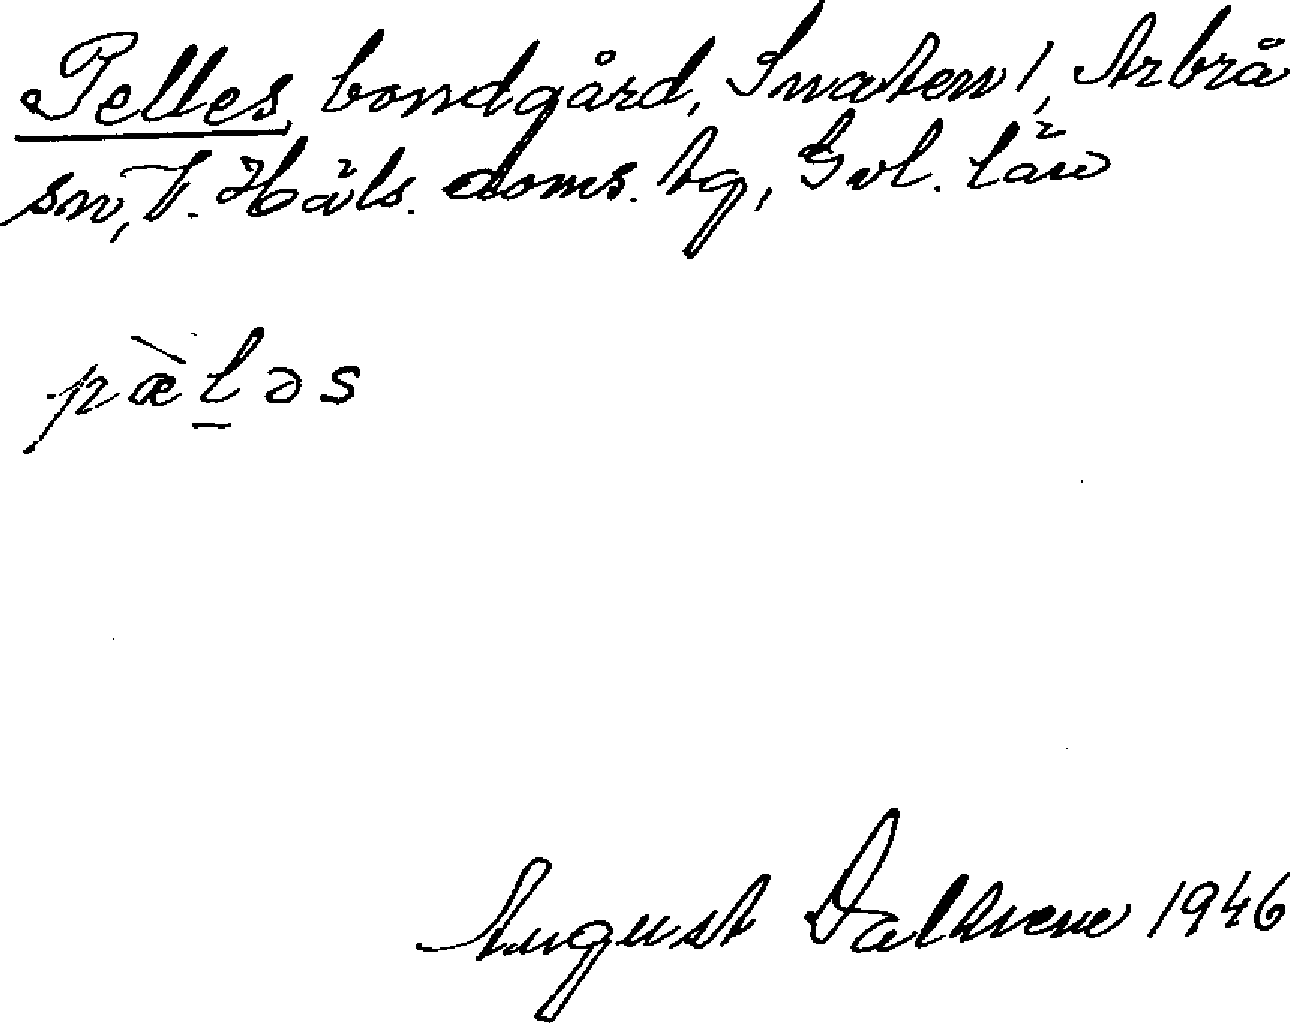 Pelles, bondgård, Snaten 1, Arbrå
sn, V. Häls. doms. tg, Gvl. län
pæ̀l̠əs
August 1946